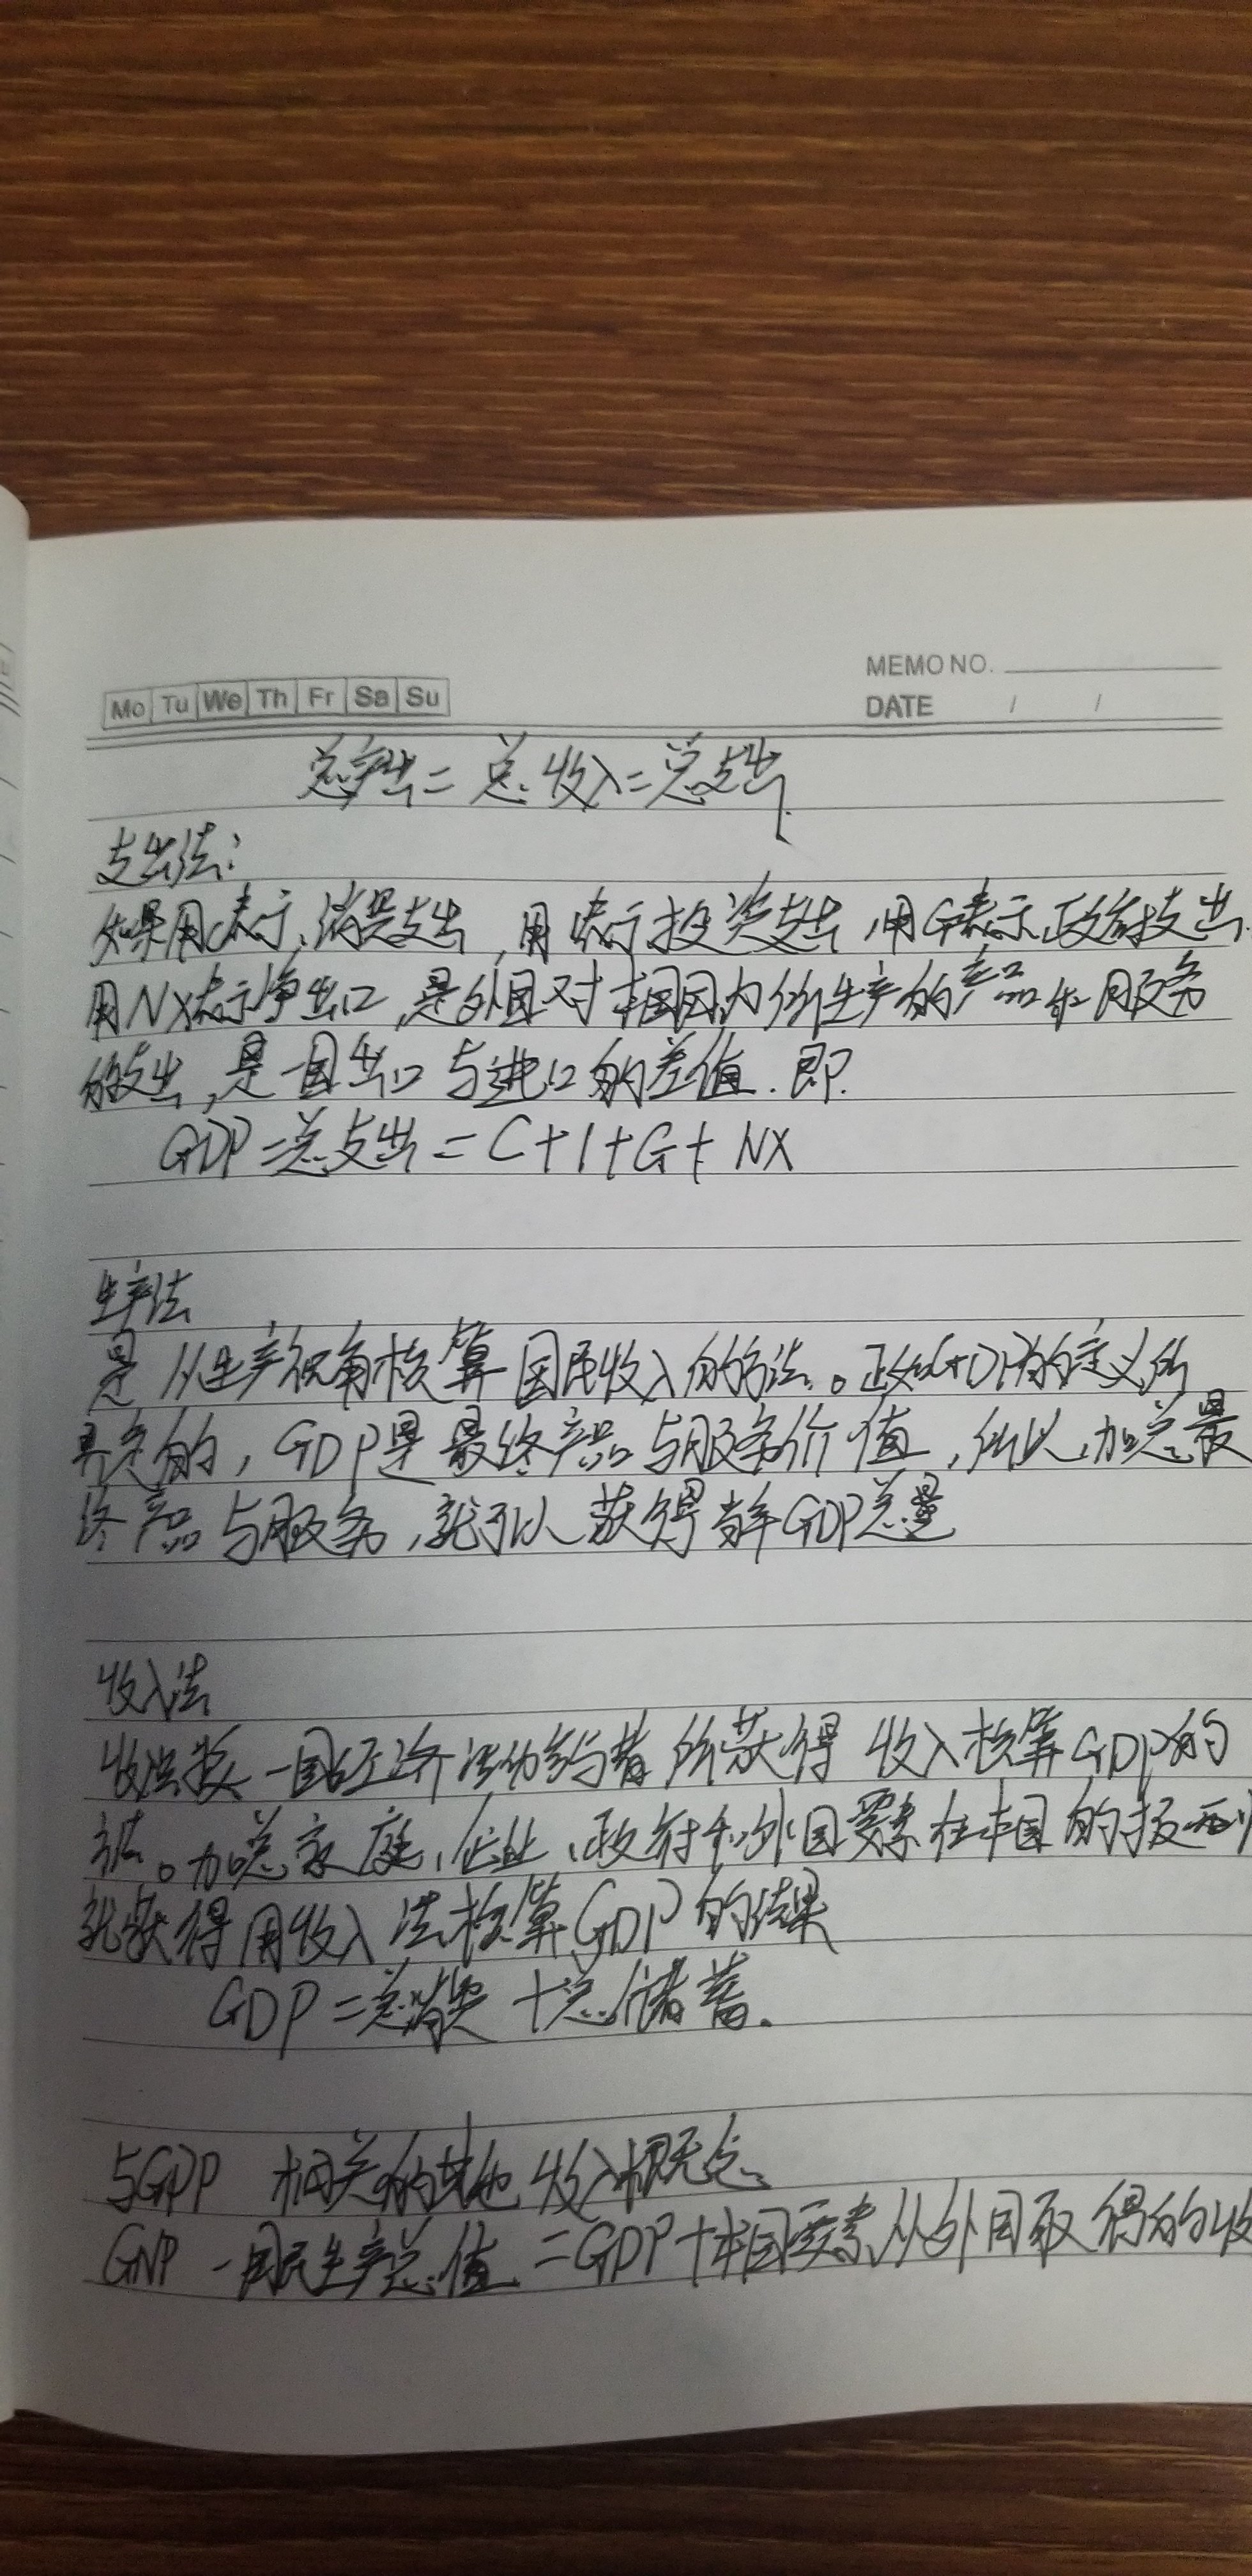 MEMO NO.
Mo Tu We Th Fr Sa Su
DATE / /
总产出=总收入=总支出
支出法:
如果用C表示消费支出,用I表示投资支出,用G表示政府支出
用NX表示净出口,是外国对本国国内所生产的产品和服务
的支出,是一国出口与进口的差值.即.
GDP=总支出=C+I+G+NX
生产法
是从生产视角核算国民收入的方法。正如GDP的定义所
的,GDP是最终产品与服务价值,所以,加总最
终产品与服务,就可以获得当年GDP总量
收入法
收入法按一国经济活动参与者所获得收入核算GDP的
方法。加总家庭、企业、政府和外国要素在本国的报酬
就获得用收入法核算GDP的结果
GDP=总消费+总储蓄.
与GDP相关的其他收入概念
GNP-国民生产总值=GDP+本国要素从外国取得的收